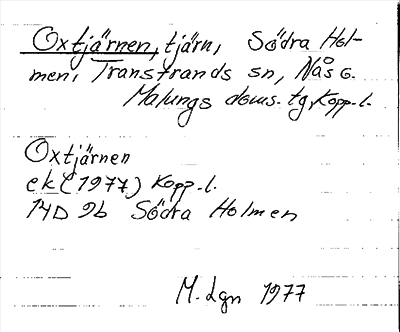 Oxtjärnen, tjärn, Södra Hol-
men, Transtrands sn, Nås o.
Malungs doms. tg, Kopp. l.
Oxtjärnen
ek (1977) Kopp. l.
14D 9b Södra Holmen
M. Lgn 1977